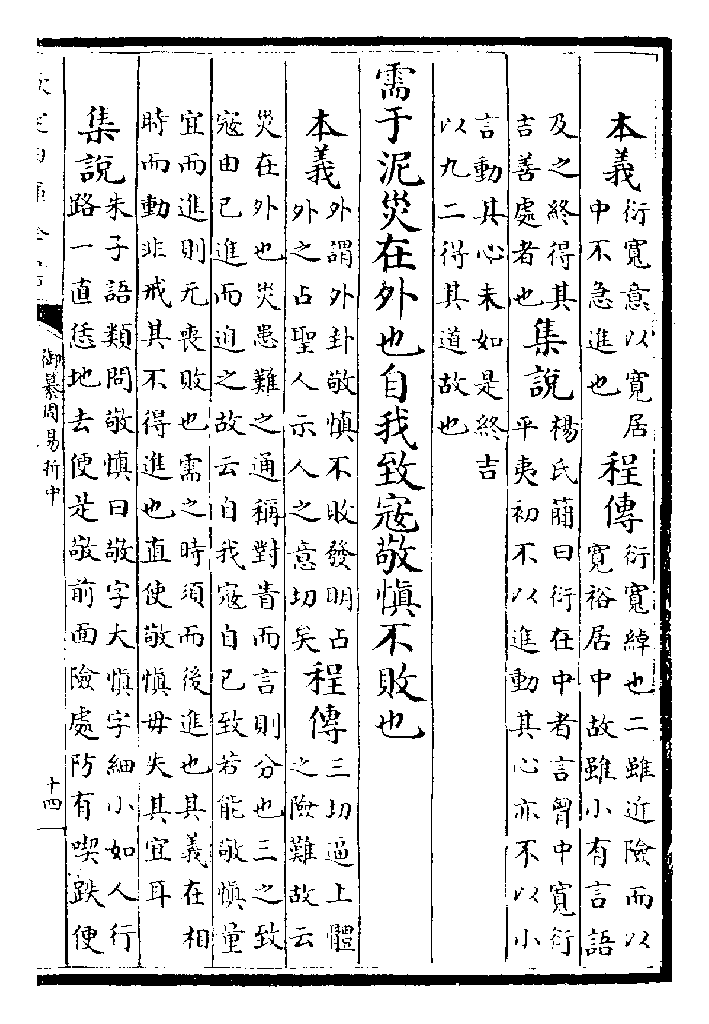 本義衍寬意以寬居
中不急進也
程傳衍寬綽也二雖近險而以
寬裕居中故雖小有言語
及之終得其
吉善處者也
集說楊氏萠曰衍在中者言胷中寬衍
平夷初不以進動其心亦不以小
言動其心未如是終吉
以九二得其道故也
需于泥災在外也自我致寇敬慎不敗也
本義外謂外卦敬慎不敗發明占
外之占聖人示人之意切矣
程傳三切逼上體
之險難故云
災在外也災患難之通稱對眚而言則分也三之致
寇由己進而迫之故云自我寇自己致若能敬慎量
宜而進則无喪敗也需之時須而後進也其義在相
時而動非戒其不得進也直使敬慎毋失其宜耳
集說朱子語類問敬慎曰敬字大慎字細小如人行
路一直恁地去便是敬前面險處防有喫跌便
御纂周易折中
十四